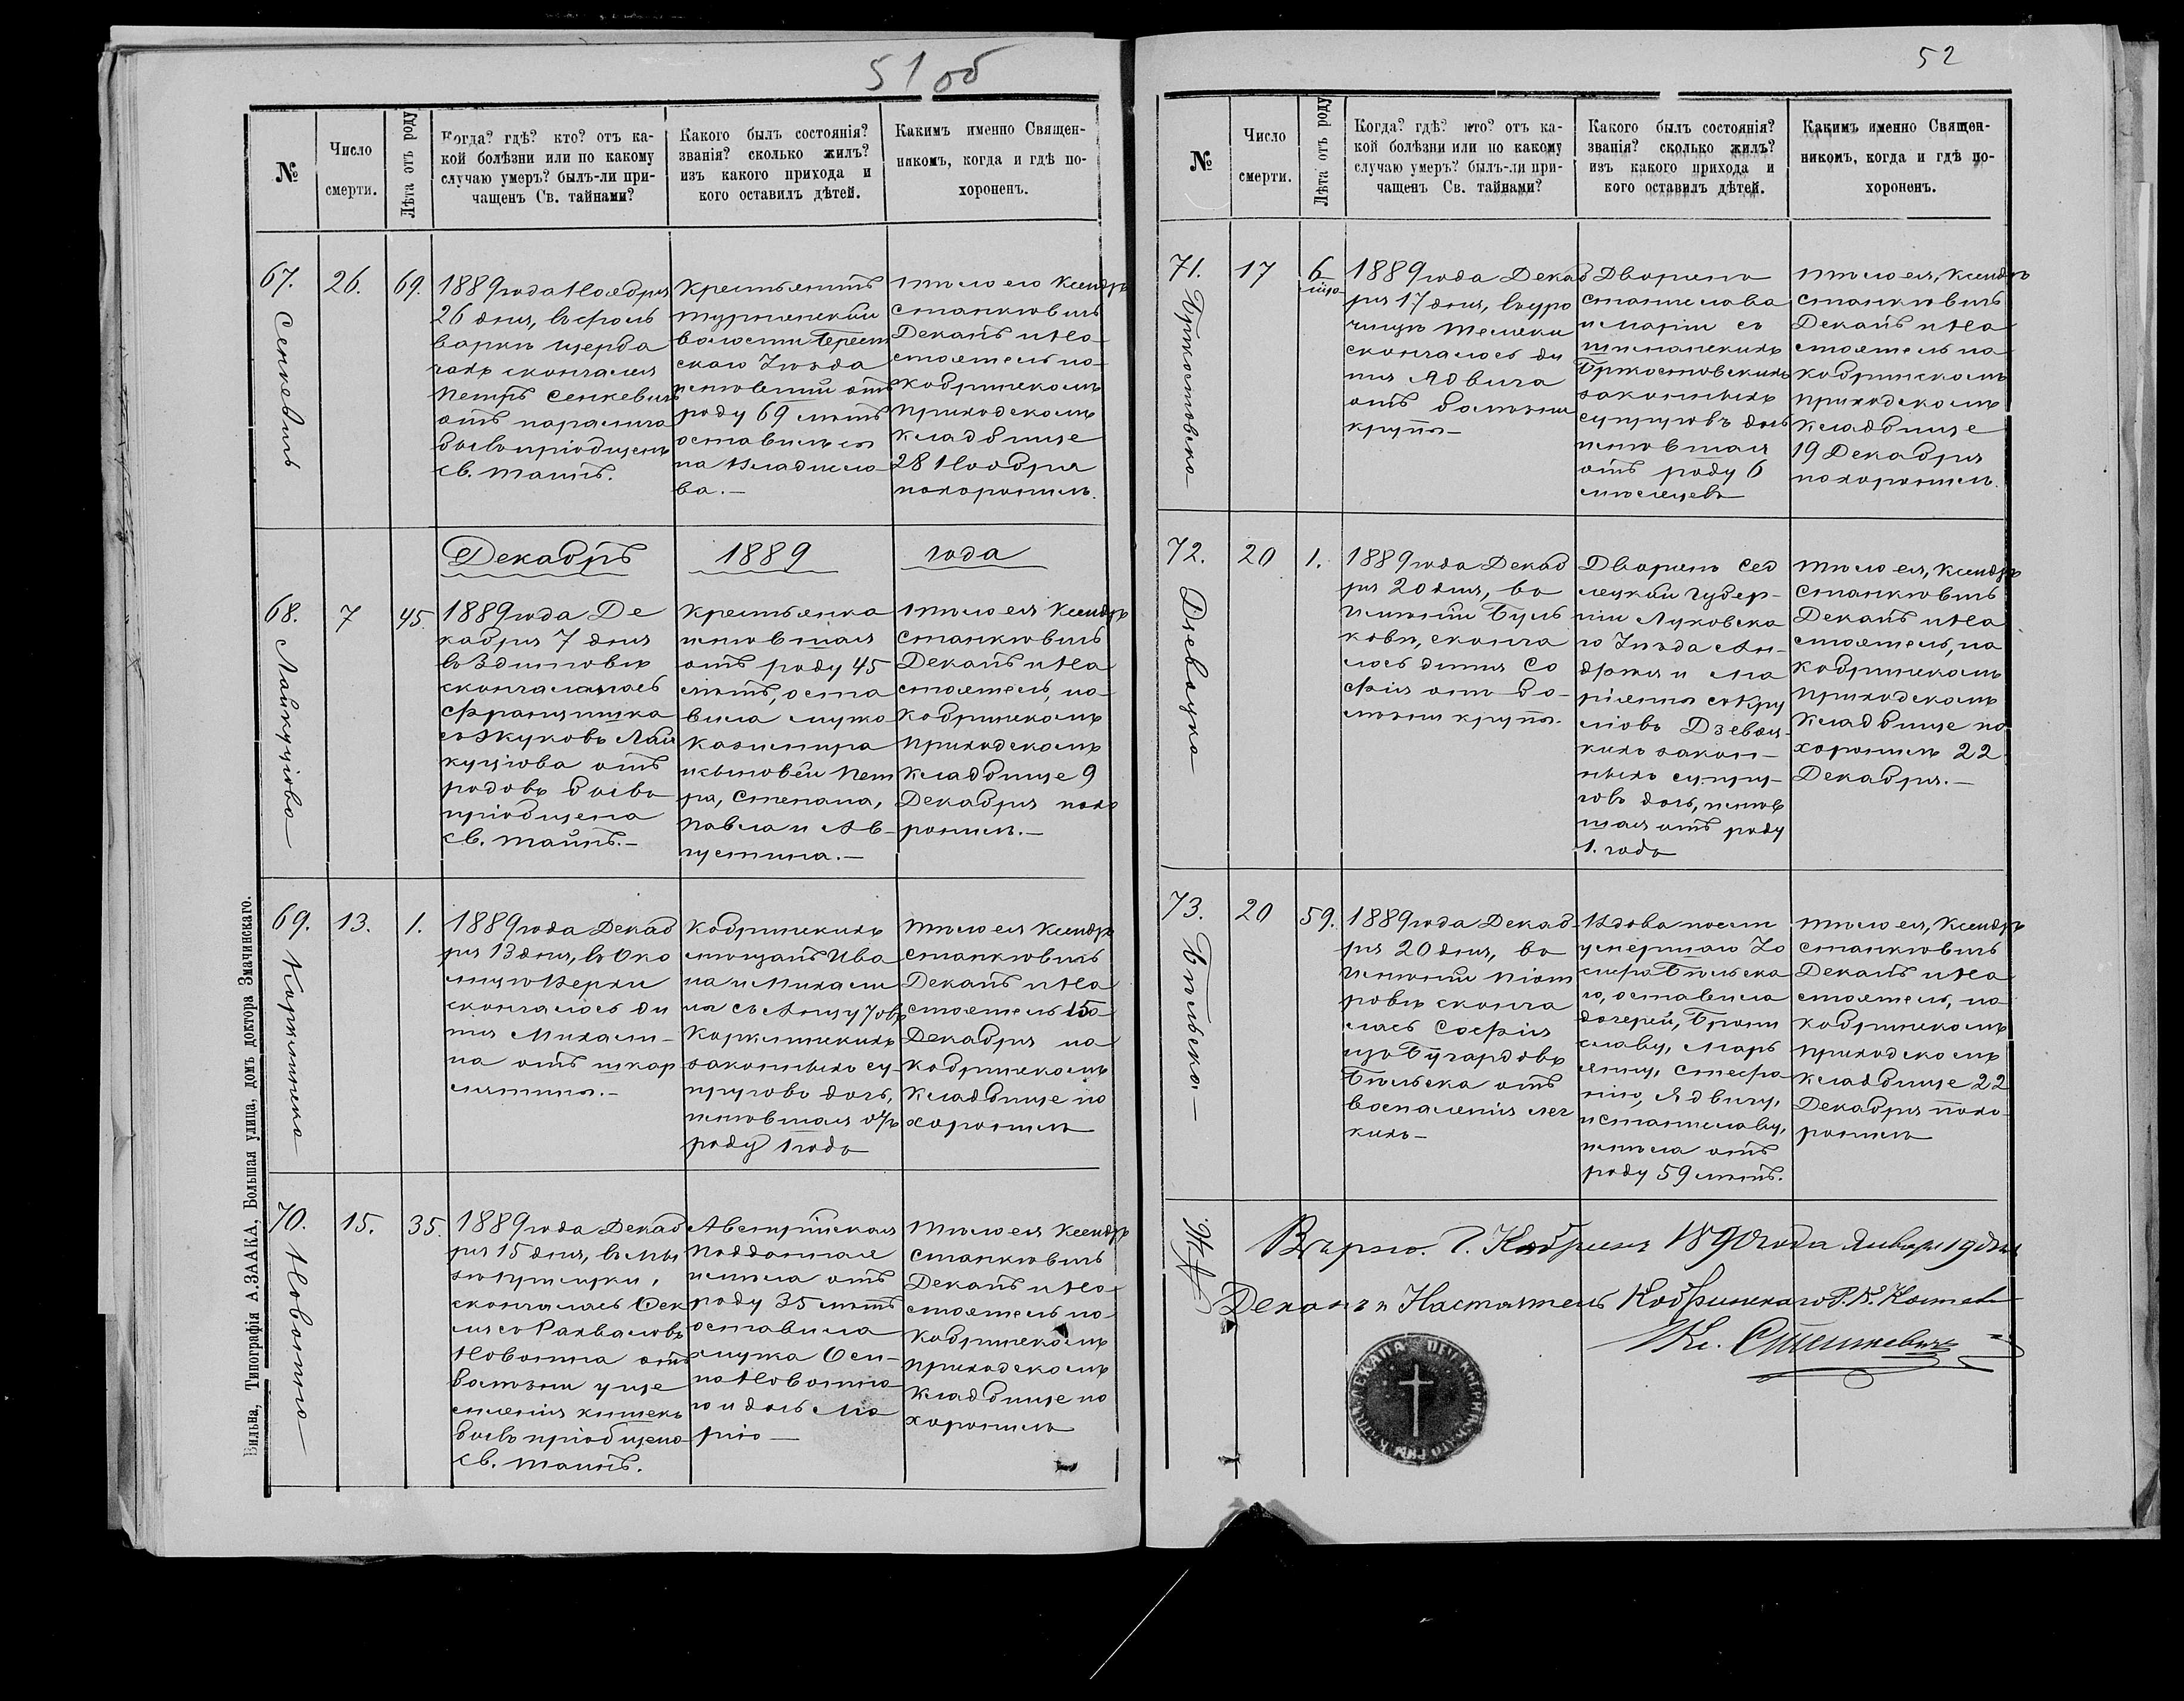 51 об
№
Число
смерти.
Лѣта отъ роду
Когда? гдѣ? кто? отъ ка-
кой болѣзни или по какому
случаю умеръ? былъ-ли при-
чащенъ Св. тайнами?
Какого былъ состоянія?
званія? сколько жилъ?
изъ какого прихода и
кого оставилъ дѣтей.
Какимъ именно Священ-
никомъ, когда и гдѣ по-
хороненъ.
67.
Сенкевичъ
26.
69.
1889 года Ноября
26 дня, въ фоль
варкѣ Щерба
чахъ скончался
Петръ Сенкевичъ
отъ паралича
бывъ пріобщенъ
св. таинъ.
Крестьянинъ
волости Брест
скаго Уѣзда
жившій отъ
роду 69 лѣтъ
оставилъ сы
на Владисла-
ва.—
Тѣло его Ксендзъ
Станкевичъ
Деканъ и На-
стоятель на
Кобринскомъ
приходскомъ
кладбище
28 Ноября
похоронилъ.
Декабрь 1889 года
68.
Лайкуціова
7
45.
1889 года Де
кабря 7 дня
скончалась
Францишка
съ Жуковъ Лай
куціова отъ
родовъ бывъ
пріобщена
св. таинъ.—
Крестьянка
жившая
отъ роду 45
лѣтъ, оста
вила мужа
Казимира
и сыновей Пет
ра, Степана,
Павла и Ав-
густина.—
Тѣло ея Ксендзъ
Станкевичъ
Деканъ и На
стоятель, на
Кобринскомъ
приходскомъ
кладбище 9
Декабря похо
ронилъ.—
69.
13.
1.
1889 года Декаб
ря 13 дня, въ Око
скончалось ди
тя Михали-
на отъ шкар
лятины.—
Кобринскихъ
мѣщанъ Ива
на и Михали
законныхъ су-
пруговъ дочь,
жившая отъ
роду 1 годъ
Тѣло ея Ксендзъ
Станкевичъ
Деканъ и На
стоятель 15
Декабря на
Кобринскомъ
кладбище по
хоронилъ
70.
15.
35.
1889 года Декаб
ря 15 дня, въ мы
скончалась Фек
ля съ Рахваловъ
отъ
болѣзни уще
мленія кишекъ
бывъ пріобщена
св. таинъ.
Австрійская
Подданная
жила отъ
роду 35 лѣтъ
оставила
мужа Оси-
па
и дочь Ма
рію—
Тѣло ея Ксендзъ
Станкевичъ
Деканъ и На-
стоятель на
Кобринскомъ
приходскомъ
кладбище по
хоронилъ
Вильна, Типографія А. ЗААКА, Большая улица, домъ доктора Змачинскаго.
52
№
Число
смерти.
Лѣта отъ роду
Когда? гдѣ? кто? отъ ка-
кой болѣзни или по какому
случаю умеръ? былъ-ли при-
чащенъ Св. тайнами?
Какого былъ состоянія?
званія? сколько жилъ?
изъ какого прихода и
кого оставилъ дѣтей.
Какимъ именно Священ-
никомъ, когда и гдѣ по-
хороненъ.
71.
Бржостовска
17
6
1889 года Декаб
ря 17 дня, въ уро
чищѣ
скончалось ди
тя Ядвига
отъ болѣзни
крупа—
Дворянъ
Станислава
и Маріи съ
Бржостовскихъ
законныхъ
супруговъ дочь
жившая
отъ роду 6
мѣсяцевъ
Тѣло ея, Ксендзъ
Станкевичъ
Деканъ и На
стоятель на
Кобринскомъ
приходскомъ
кладбище
19 Декабря
похоронилъ.
72.
20
1.
1889 года Декаб
ря 20 дня, въ
Имѣніи Буль
ковѣ, сконча
лось дитя Со
фія отъ бо-
лѣзни крупа.
Дворянъ Сед
лецкой Губер-
ніи Луковска
го Уѣзда Ан-
држея и Ма
ріянны съ Кру
ковъ
закон-
ныхъ супру-
говъ дочь, жив
шая отъ роду
1. годъ
Тѣло ея, Ксендзъ
Станкевичъ
Деканъ и На
стоятель, на
Кобринскомъ
приходскомъ
кладбище по
хоронилъ 22
Декабря.—
73.
Бѣльска.—
20
59.
1889 года Декаб-
ря 20 дня, въ
Имѣніи Піот
ровѣ сконча
лась Софія
Бѣльска отъ
воспаленія лег
кихъ—
Вдова послѣ
умершаго Іо
сифа Бѣльска
го, оставила
дочерей, Брони
славу, Марь
янну, Стефа
нію, Ядвигу,
и Станиславу,
жила отъ
роду 59 лѣтъ.
Тѣло ея, Ксендзъ
Станкевичъ
Деканъ и На
стоятель, на
Кобринскомъ
приходскомъ
кладбище 22
Декабря похо-
ронилъ
Вѣрно. Г. Кобринъ 1890 года Января 19 дня
Деканъ и Настоятель Кобринскаго Р. К. Костела
Кс. Станкевичъ